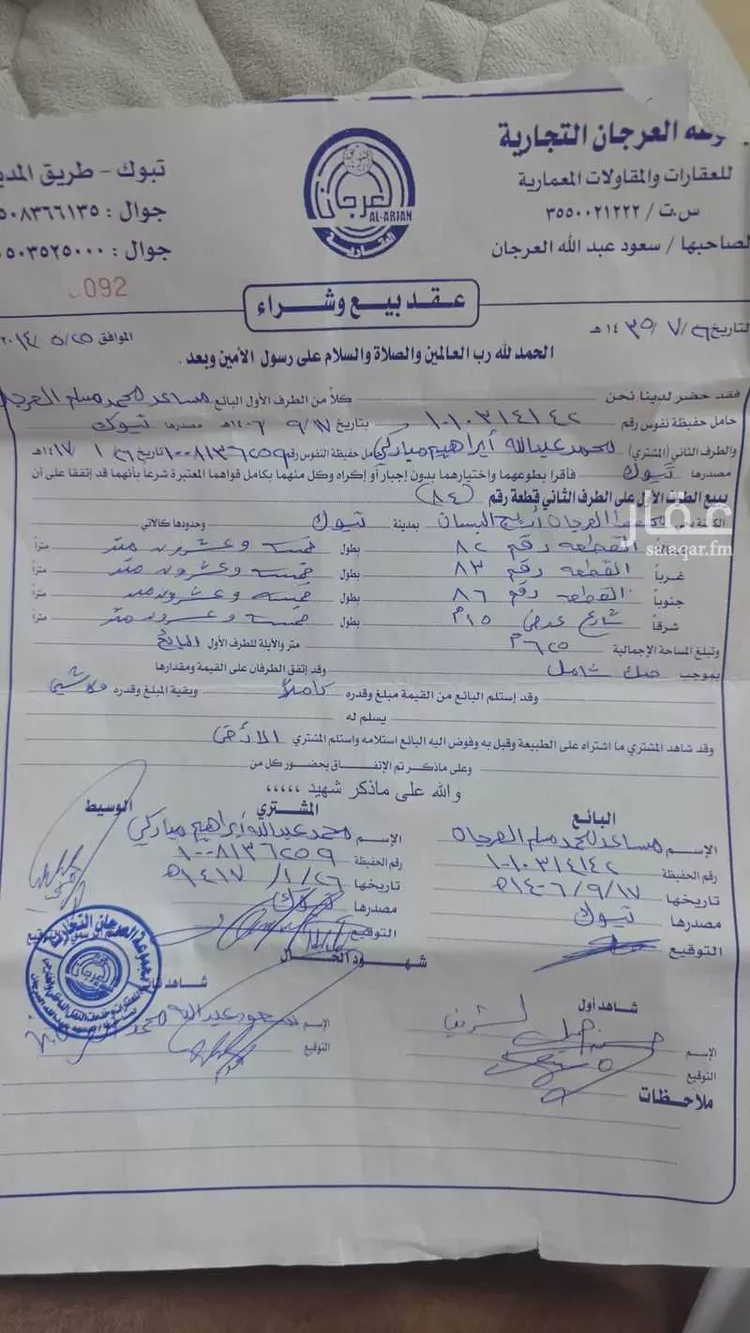 العرجان التجارية
للعقارات والمقاولات المعمارية
س.ت / ٣٥٥٠٠٢١٢٢٢
لصاحبها / سعود عبد الله العرجان
AL-ARJAN
العقارية
تبوك - طريق المدي
جوال : ٥٠٨٣٦٦١٣٥
جوال : ٥٠٣٥٢٥٠٠٠
092
عـقـد بيـع وشـراء
التاريخ ٢٦/ ٧/ ١٤٣٥ هـ الموافق ٢٥/ ٥/ ٢٠١٤
الحمد لله رب العالمين والصلاة والسلام على رسول الأمين وبعد .
فقد حضر لدينا نحن كلاً من الطرف الأول البائع مساعد محمد مسلم العرجان
حامل حفيظة نفوس رقم ١٠١٠٣١٤١٤٢ بتاريخ ٩/١٧/ ١٤٠٦هـ مصدرها تبوك
والطرف الثاني (المشتري) محمد عبدالله أبراهيم مباركي حامل حفيظة النفوس رقم ١٠٠٨١٣٦٢٥٩ تاريخ ٢٦/ ١/ ١٤١٧هـ
مصدرها تبوك فأقرا بطوعهما واختيارهما بدون إجبار أو إكراه وكل منهما بكامل قواهما المعتبرة شرعا بأنهما قد إتفقا على أن
يبيع الطرف الأول على الطرف الثاني قطعة رقم (٨٤)
العرجان البستان بمدينة تبوك وحدودها كالآتي
شمالاً القطعه رقم ٨٢ بطول خمسه وعشرون متر متراً
غرباً القطعه رقم ٨٣ بطول خمسه وعشرون متر متراً
جنوباً القطعه رقم ٨٦ بطول خمسه وعشرون متر متراً
شرقاً شارع عرض ١٥م بطول خمسه وعشرون متر متراً
وتبلغ المساحة الإجمالية ٦٢٥م متر والآيلة للطرف الأول البائع
بموجب صك شامل وقد إتفق الطرفان على القيمة ومقدارها
وقد إستلم البائع من القيمة مبلغ وقدره كاملاً وبقية المبلغ وقدره
يسلم له
وقد شاهد المشتري ما اشتراه على الطبيعة وقبل به وفوض اليه البائع استلامه واستلم المشتري الأرض
وعلى ماذكر تم الإتفـاق بحضور كل من
و الله على ماذكر شهيد ،،،،،
البائع
الإسم مساعد محمد مسلم العرجان
رقم الحفيظة ١٠١٠٣١٤١٤٢
تاريخها ١٤٠٦/٩/١٧هـ
مصدرها تبوك
التوقيع
المشتري
الإسم محمد عبدالله أبراهيم مباركي
رقم الحفيظة ١٠٠٨١٣٦٢٥٩
تاريخها ٢٦/ ١/ ١٤١٧هـ
مصدرها تبوك
التوقيع
الوسيط
شهـود الحـال
شاهد أول
الإسم
التوقيع
شاهد ثاني
الإسم سعود عبدالله محمد
التوقيع
ملاحظات
عقار
sa.aqar.fm